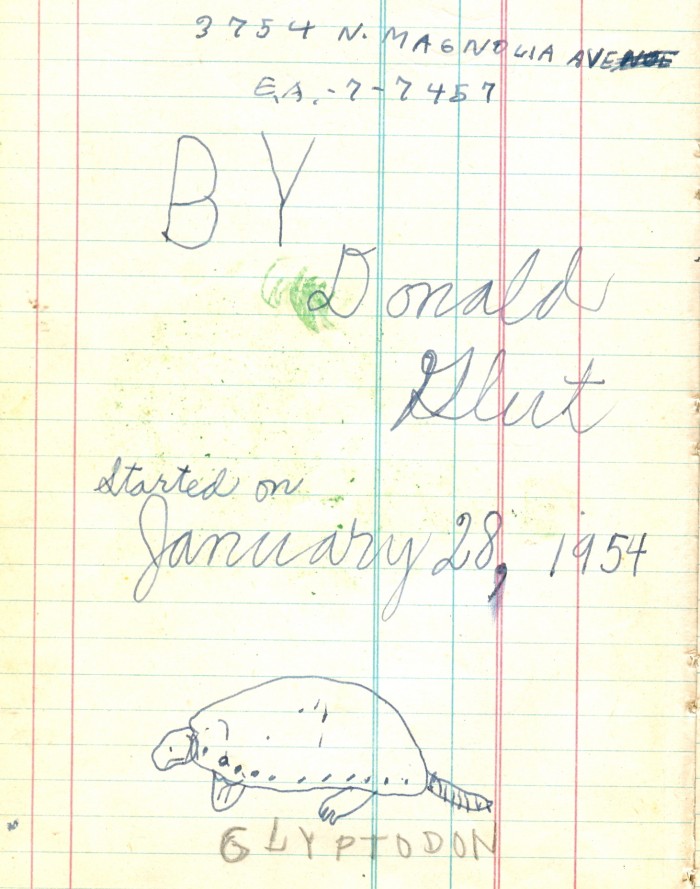 3754 N. MAGNOLIA AVENUE
E.A.-7-7457
BY
Donald
Glut
Started on
January 28, 1954
GLYPTODON